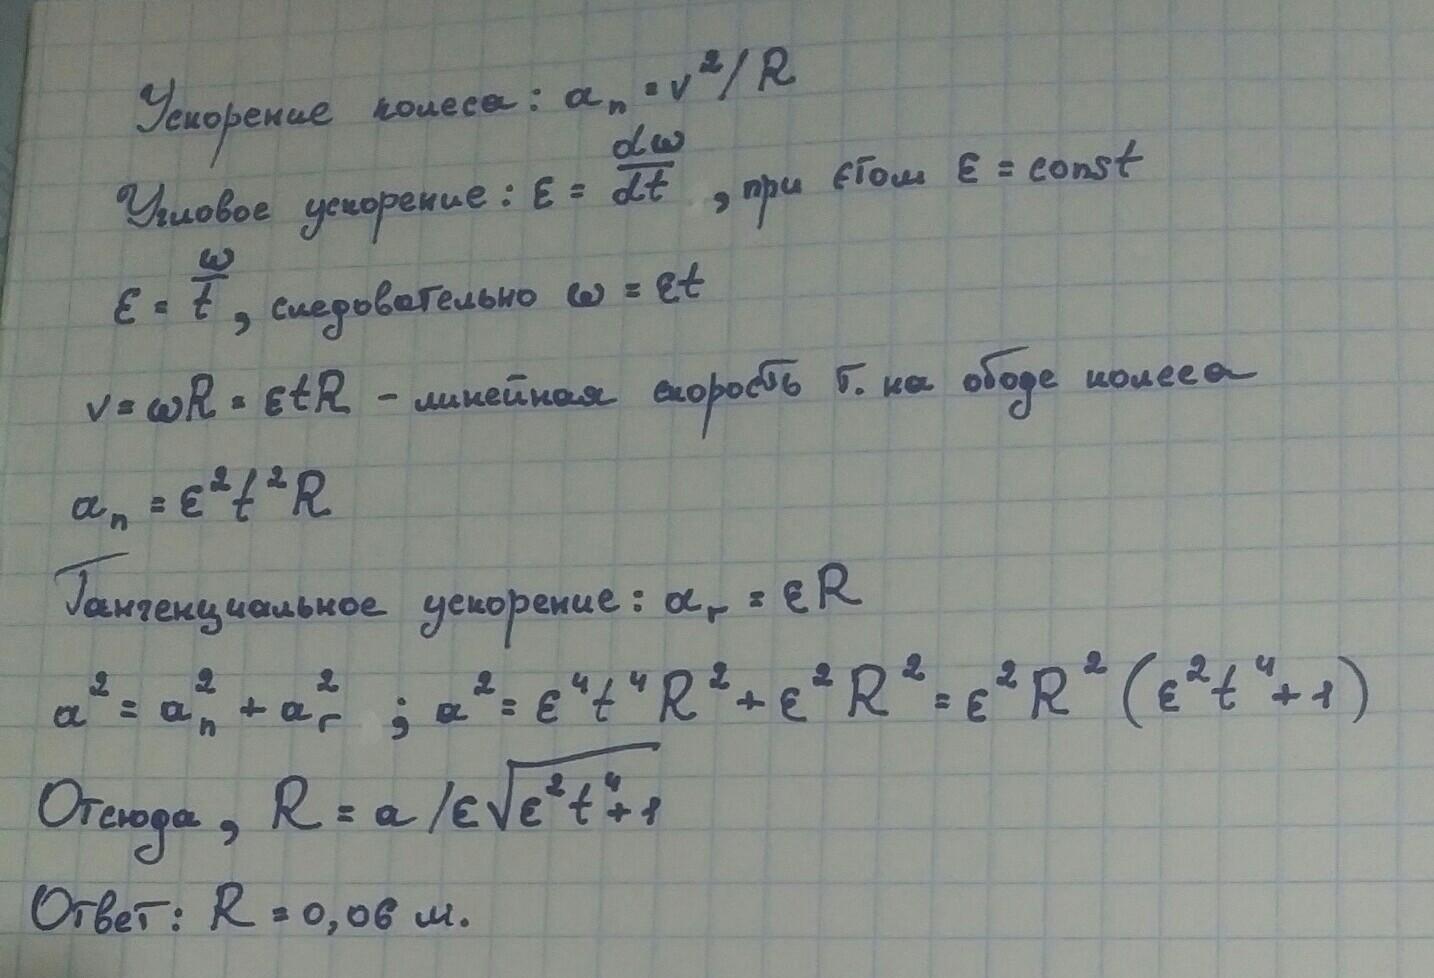 Ускорение колеса: aₙ = v²/R
Угловое ускорение: ε = dω/dt, при етом ε = const
ε = ω/t, следовательно ω = εt
v = ωR = εtR - линейная скорость т. на ободе колеса
aₙ = ε²t²R
Тангенциальное ускорение: aτ = εR
a² = aₙ² + aτ² ; a² = ε⁴t⁴R² + ε²R² = ε²R² (ε²t⁴ + 1)
Отсюда, R = a/ε√(ε²t⁴+1)
Ответ: R = 0,06 м.